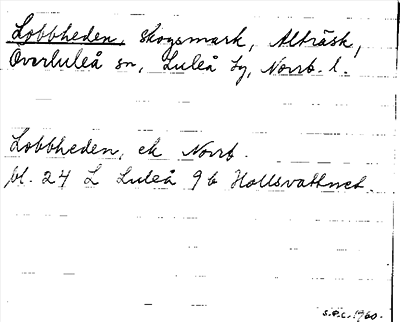 Lobbheden, skogsmark, Alträsk,
Överluleå sn, Luleå ty, Norrb. l.
Lobbheden, ek Norrb.
bl. 24 L Luleå 9 b Hallsvattnet.
s.o.c. 1960.